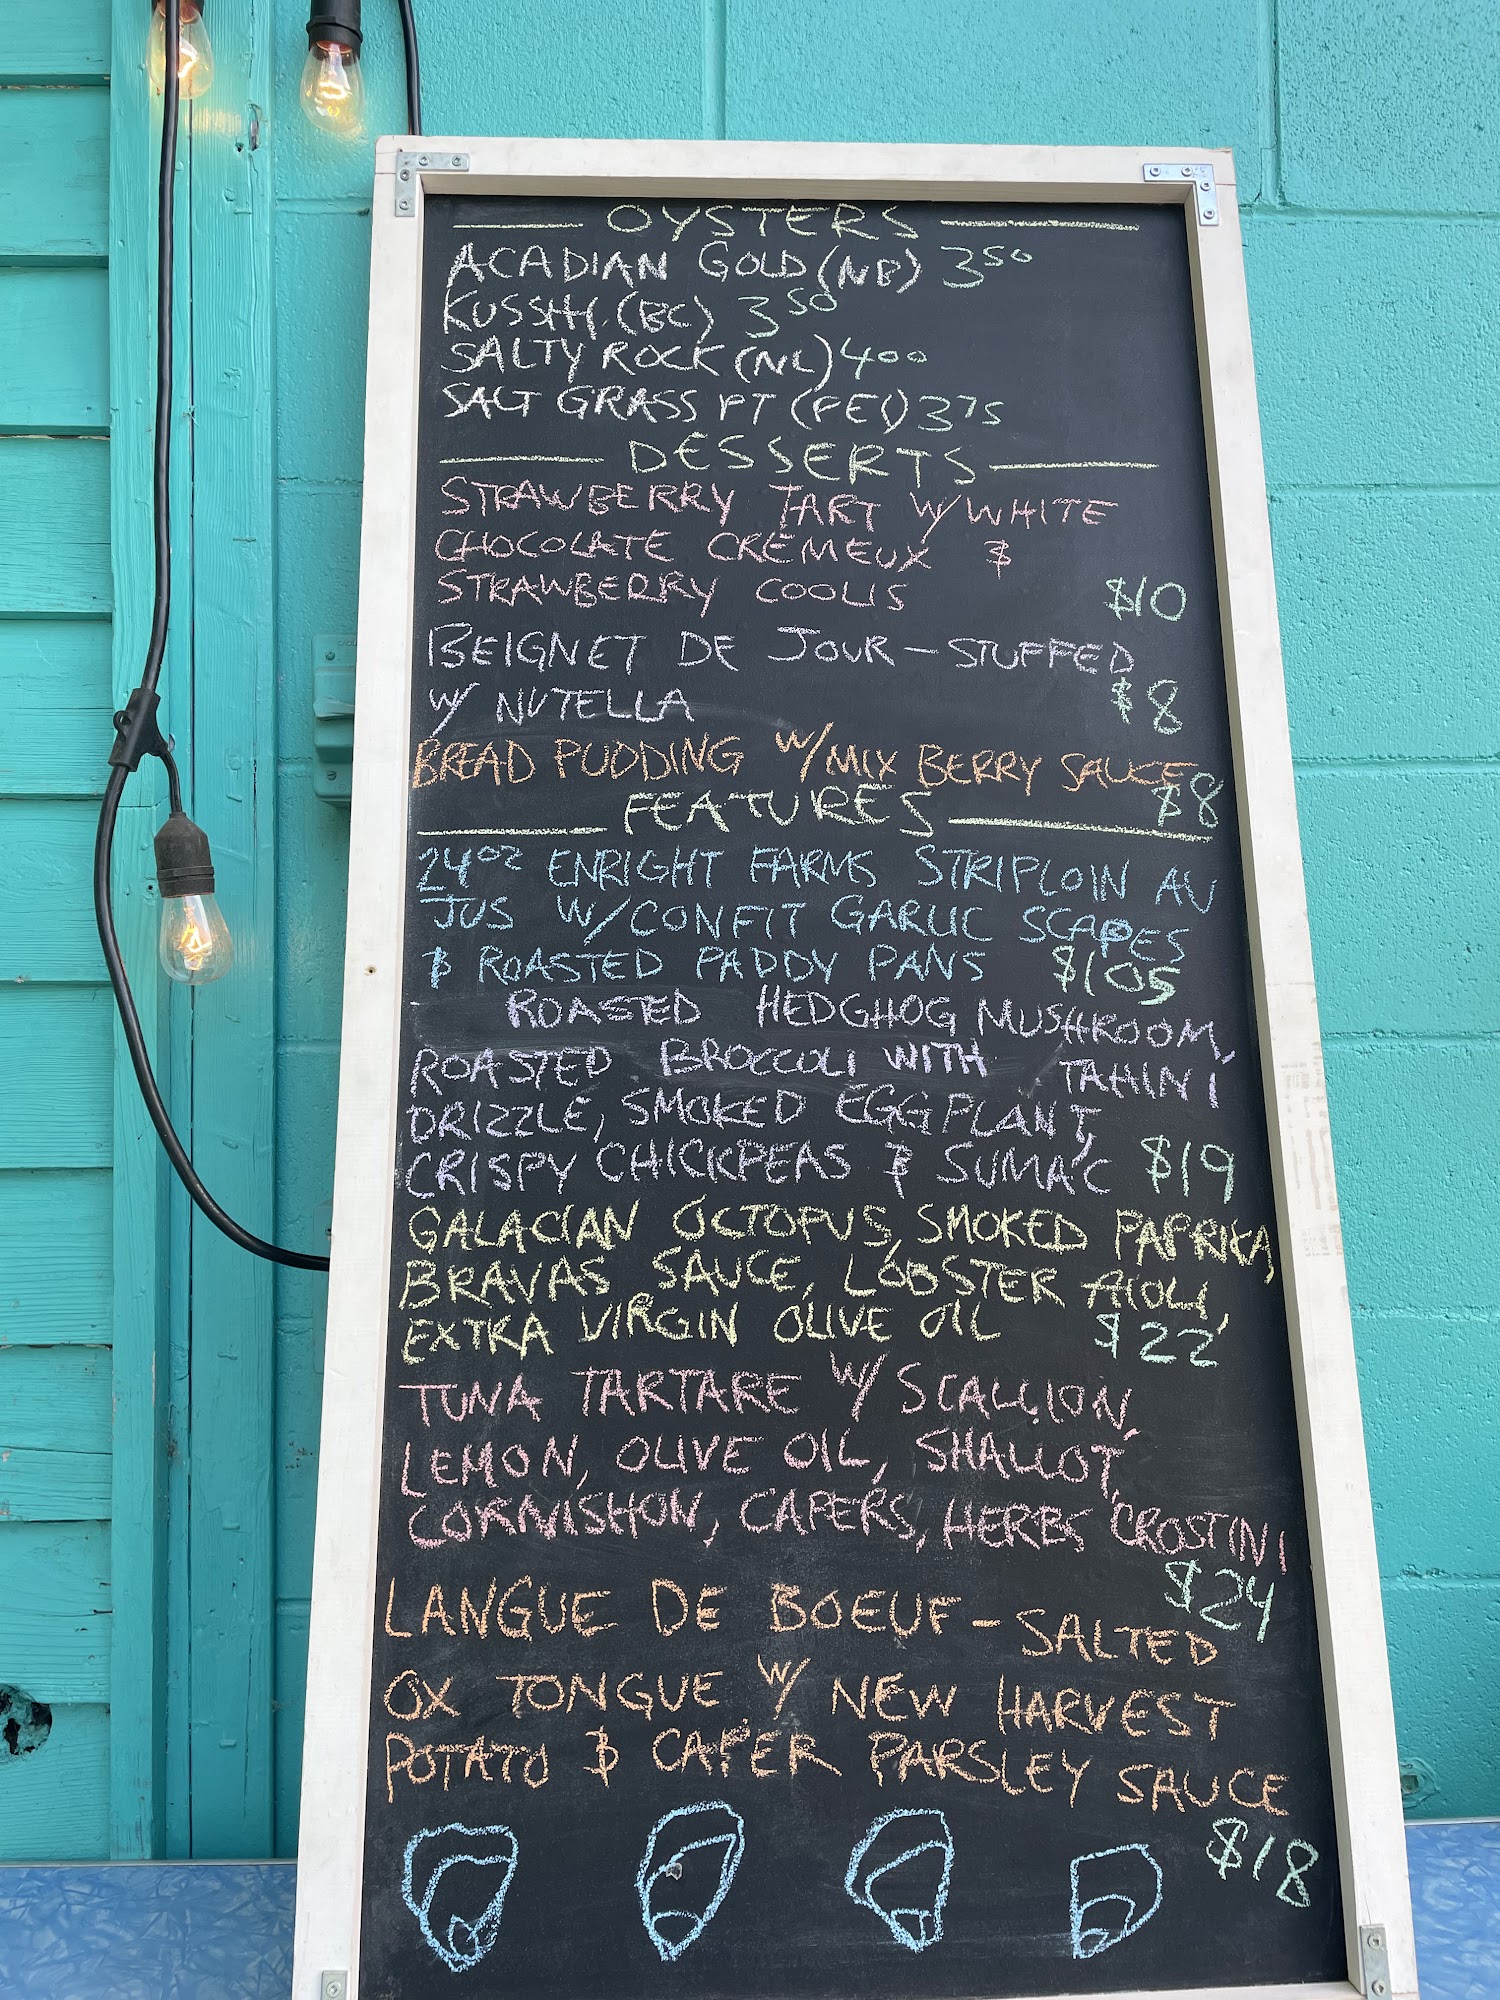 OYSTERS
ACADIAN GOLD (NB) 3⁵⁰
KUSSHI (BC) 3⁵⁰
SALTY ROCK (NL) 4⁰⁰
SALT GRASS PT (PEI) 3⁷⁵
DESSERTS
STRAWBERRY TART W/ WHITE
CHOCOLATE CRÉMEUX &
STRAWBERRY COOLIS $10
BEIGNET DE JOUR - STUFFED
W/ NUTELLA $8
BREAD PUDDING W/ MIX BERRY SAUCE
$8
FEATURES
24oz ENRIGHT FARMS STRIPLOIN AU
JUS W/ CONFIT GARLIC SCAPES
& ROASTED PADDY PANS $105
ROASTED HEDGHOG MUSHROOM,
ROASTED BROCCOLI WITH TAHINI
DRIZZLE, SMOKED EGGPLANT,
CRISPY CHICKPEAS & SUMAC $19
GALACIAN OCTOPUS, SMOKED PAPRIKA,
BRAVAS SAUCE, LOBSTER AIOLI,
EXTRA VIRGIN OLIVE OIL $22
TUNA TARTARE W/ SCALLION,
LEMON, OLIVE OIL, SHALLOT,
CORNISHON, CAPERS, HERBS, CROSTINI
$24
LANGUE DE BOEUF - SALTED
OX TONGUE W/ NEW HARVEST
POTATO & CAPER PARSLEY SAUCE
$18